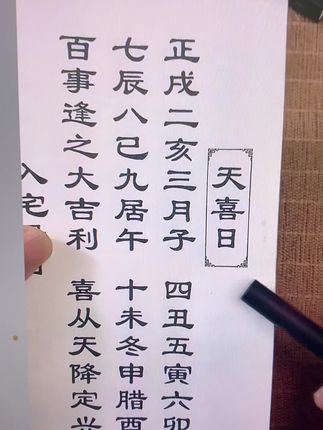 天喜日
正戌二亥三月子 四丑五寅六卯
七辰八巳九居午 十未冬申腊酉
百事逢之大吉利 喜从天降定兴
入宅